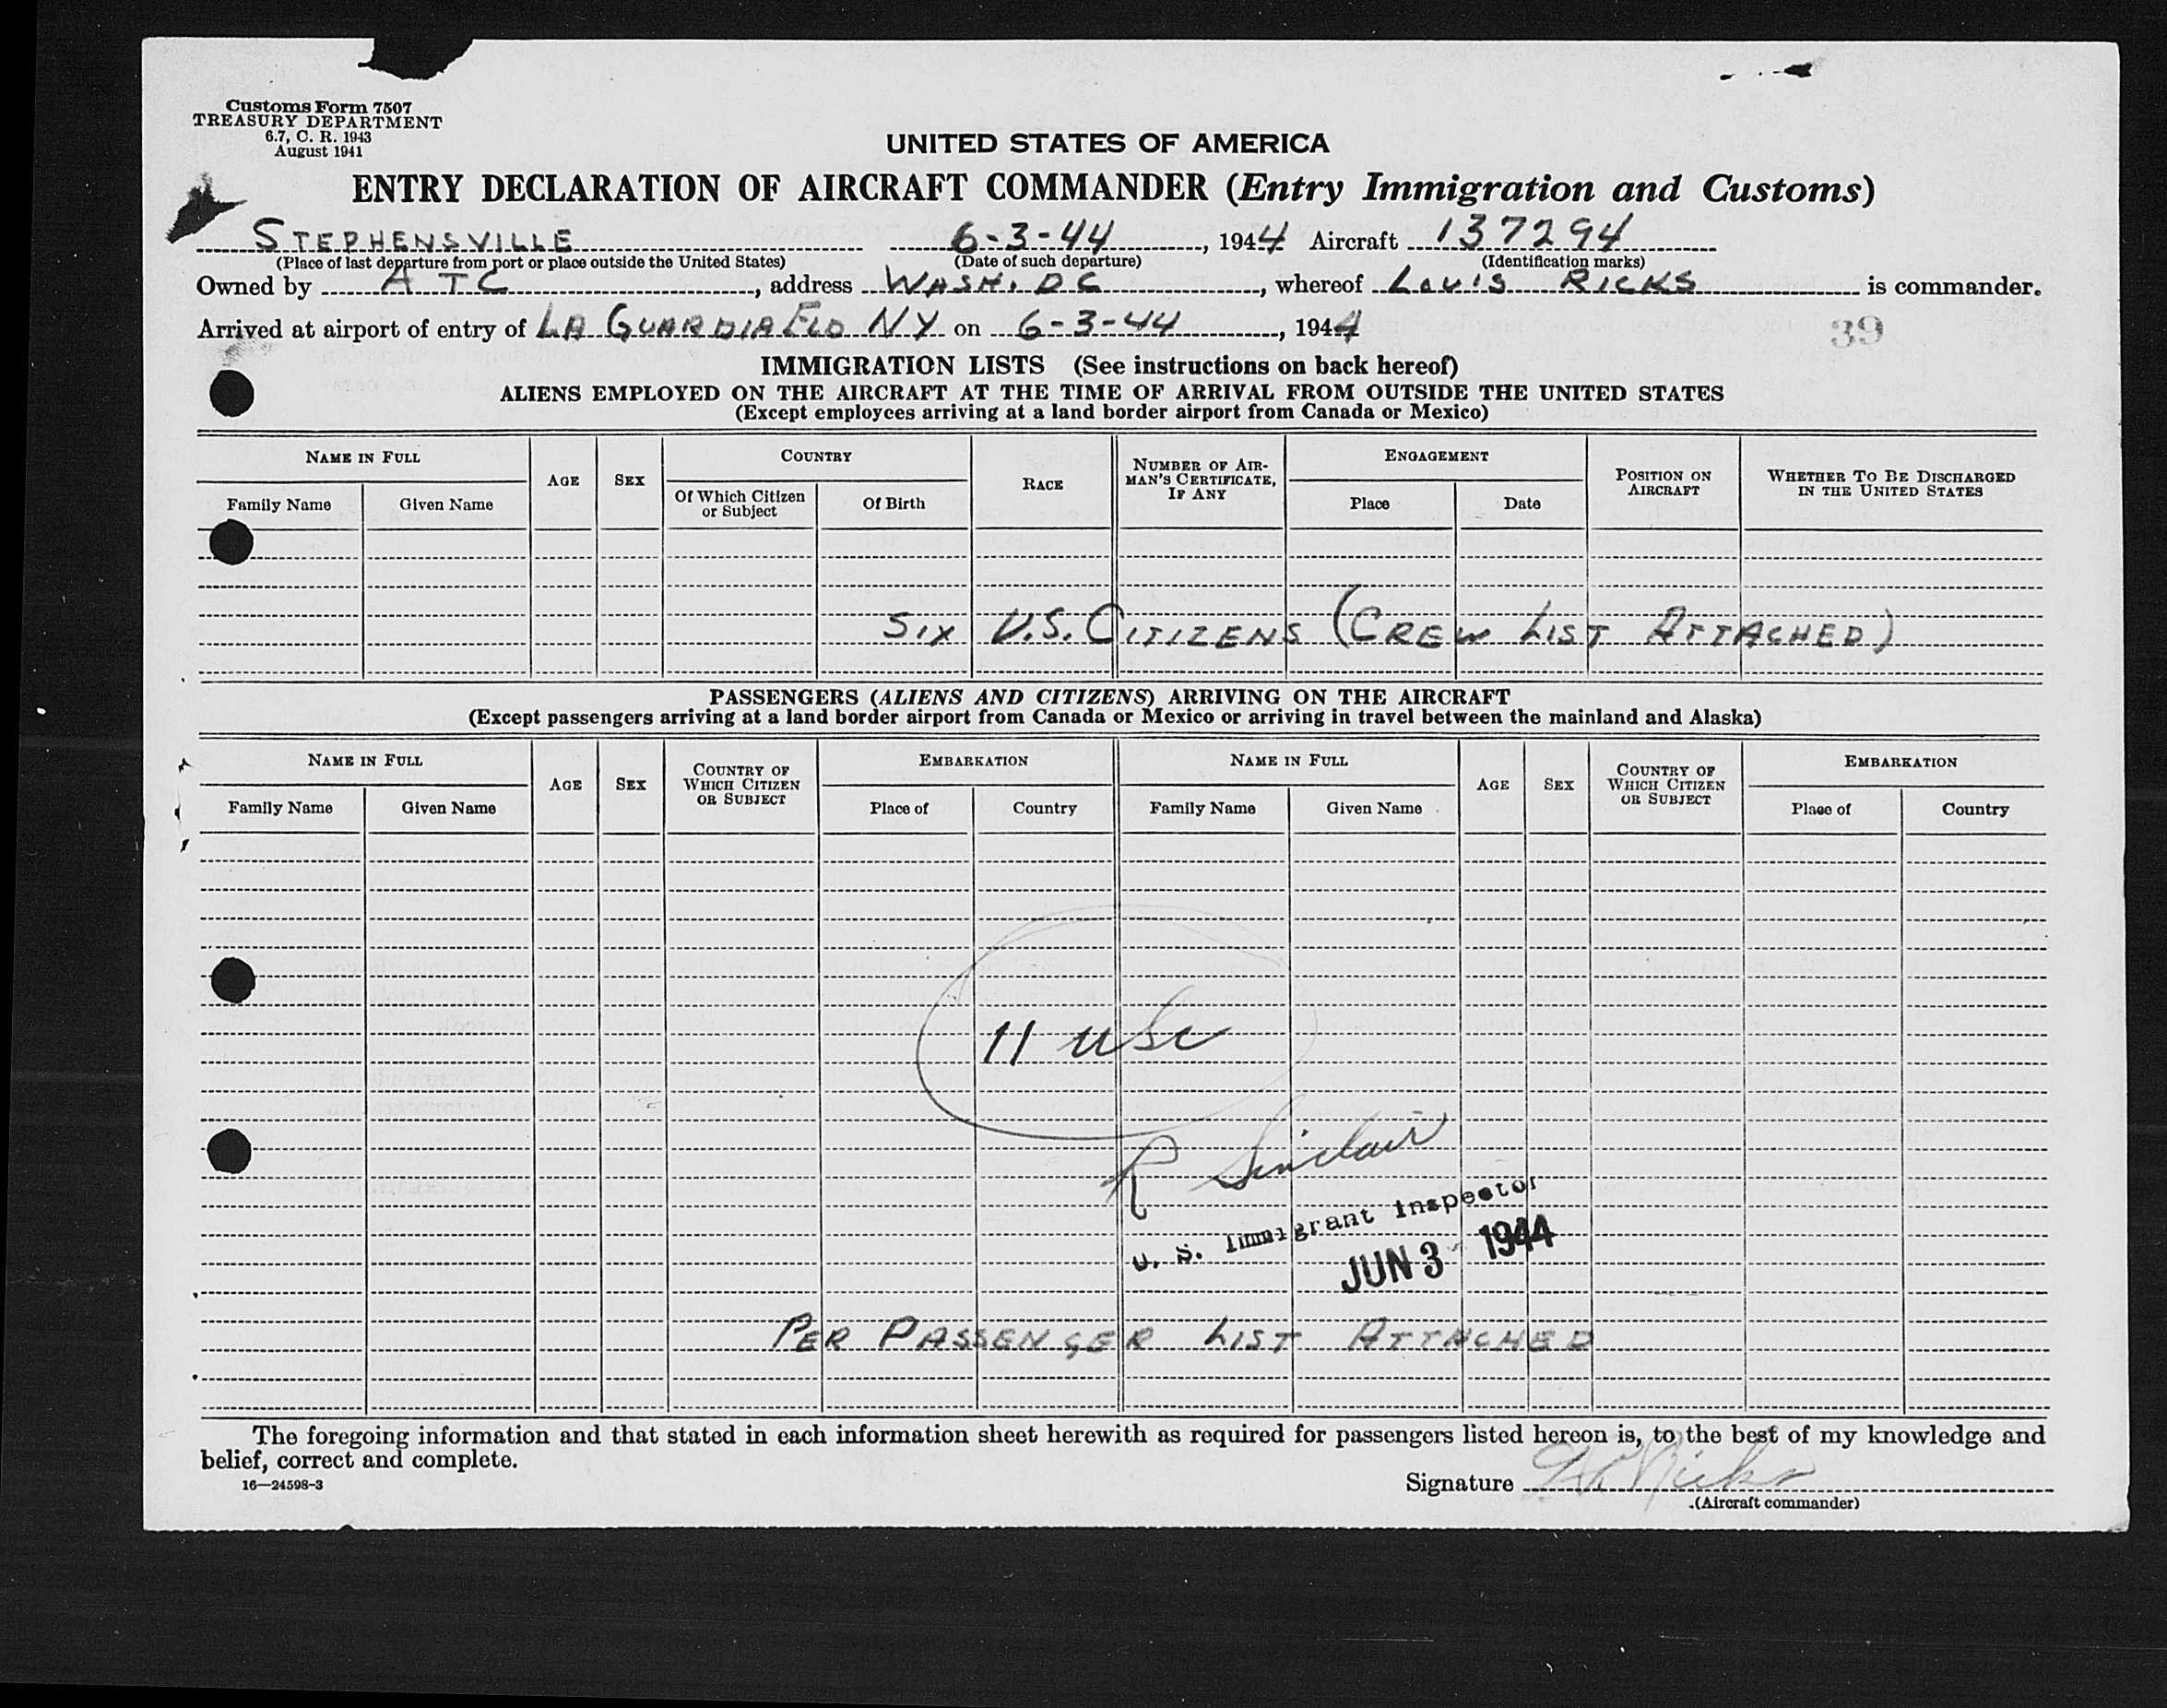 Customs Form 7507
TREASURY DEPARTMENT
6.7, C. R. 1943
August 1941
UNITED STATES OF AMERICA
ENTRY DECLARATION OF AIRCRAFT COMMANDER (Entry Immigration and Customs)
STEPHENSVILLE 6-3-44, 1944 Aircraft 137294
(Place of last departure from port or place outside the United States) (Date of such departure) (Identification marks)
Owned by ATC, address WASH. DC, whereof LOUIS RICKS is commander.
Arrived at airport of entry of LA GUARDIA FLD NY on 6-3-44, 1944
39
IMMIGRATION LISTS (See instructions on back hereof)
ALIENS EMPLOYED ON THE AIRCRAFT AT THE TIME OF ARRIVAL FROM OUTSIDE THE UNITED STATES
(Except employees arriving at a land border airport from Canada or Mexico)
NAME IN FULL
Family Name Given Name
AGE
SEX
COUNTRY
Of Which Citizen
or Subject
Of Birth
RACE
NUMBER OF AIR-
MAN'S CERTIFICATE,
IF ANY
ENGAGEMENT
Place Date
POSITION ON
AIRCRAFT
WHETHER TO BE DISCHARGED
IN THE UNITED STATES
SIX U.S. CITIZENS (CREW LIST ATTACHED)
PASSENGERS (ALIENS AND CITIZENS) ARRIVING ON THE AIRCRAFT
(Except passengers arriving at a land border airport from Canada or Mexico or arriving in travel between the mainland and Alaska)
NAME IN FULL
Family Name Given Name
AGE
SEX
COUNTRY OF
WHICH CITIZEN
OR SUBJECT
EMBARKATION
Place of Country
NAME IN FULL
Family Name Given Name
AGE
SEX
COUNTRY OF
WHICH CITIZEN
OR SUBJECT
EMBARKATION
Place of Country
11 usc
R Sinclair
U. S. Immigrant Inspector
JUN 3 1944
PER PASSENGER LIST ATTACHED
The foregoing information and that stated in each information sheet herewith as required for passengers listed hereon is, to the best of my knowledge and
belief, correct and complete.
16—24598-3
Signature Ricks
(Aircraft commander)